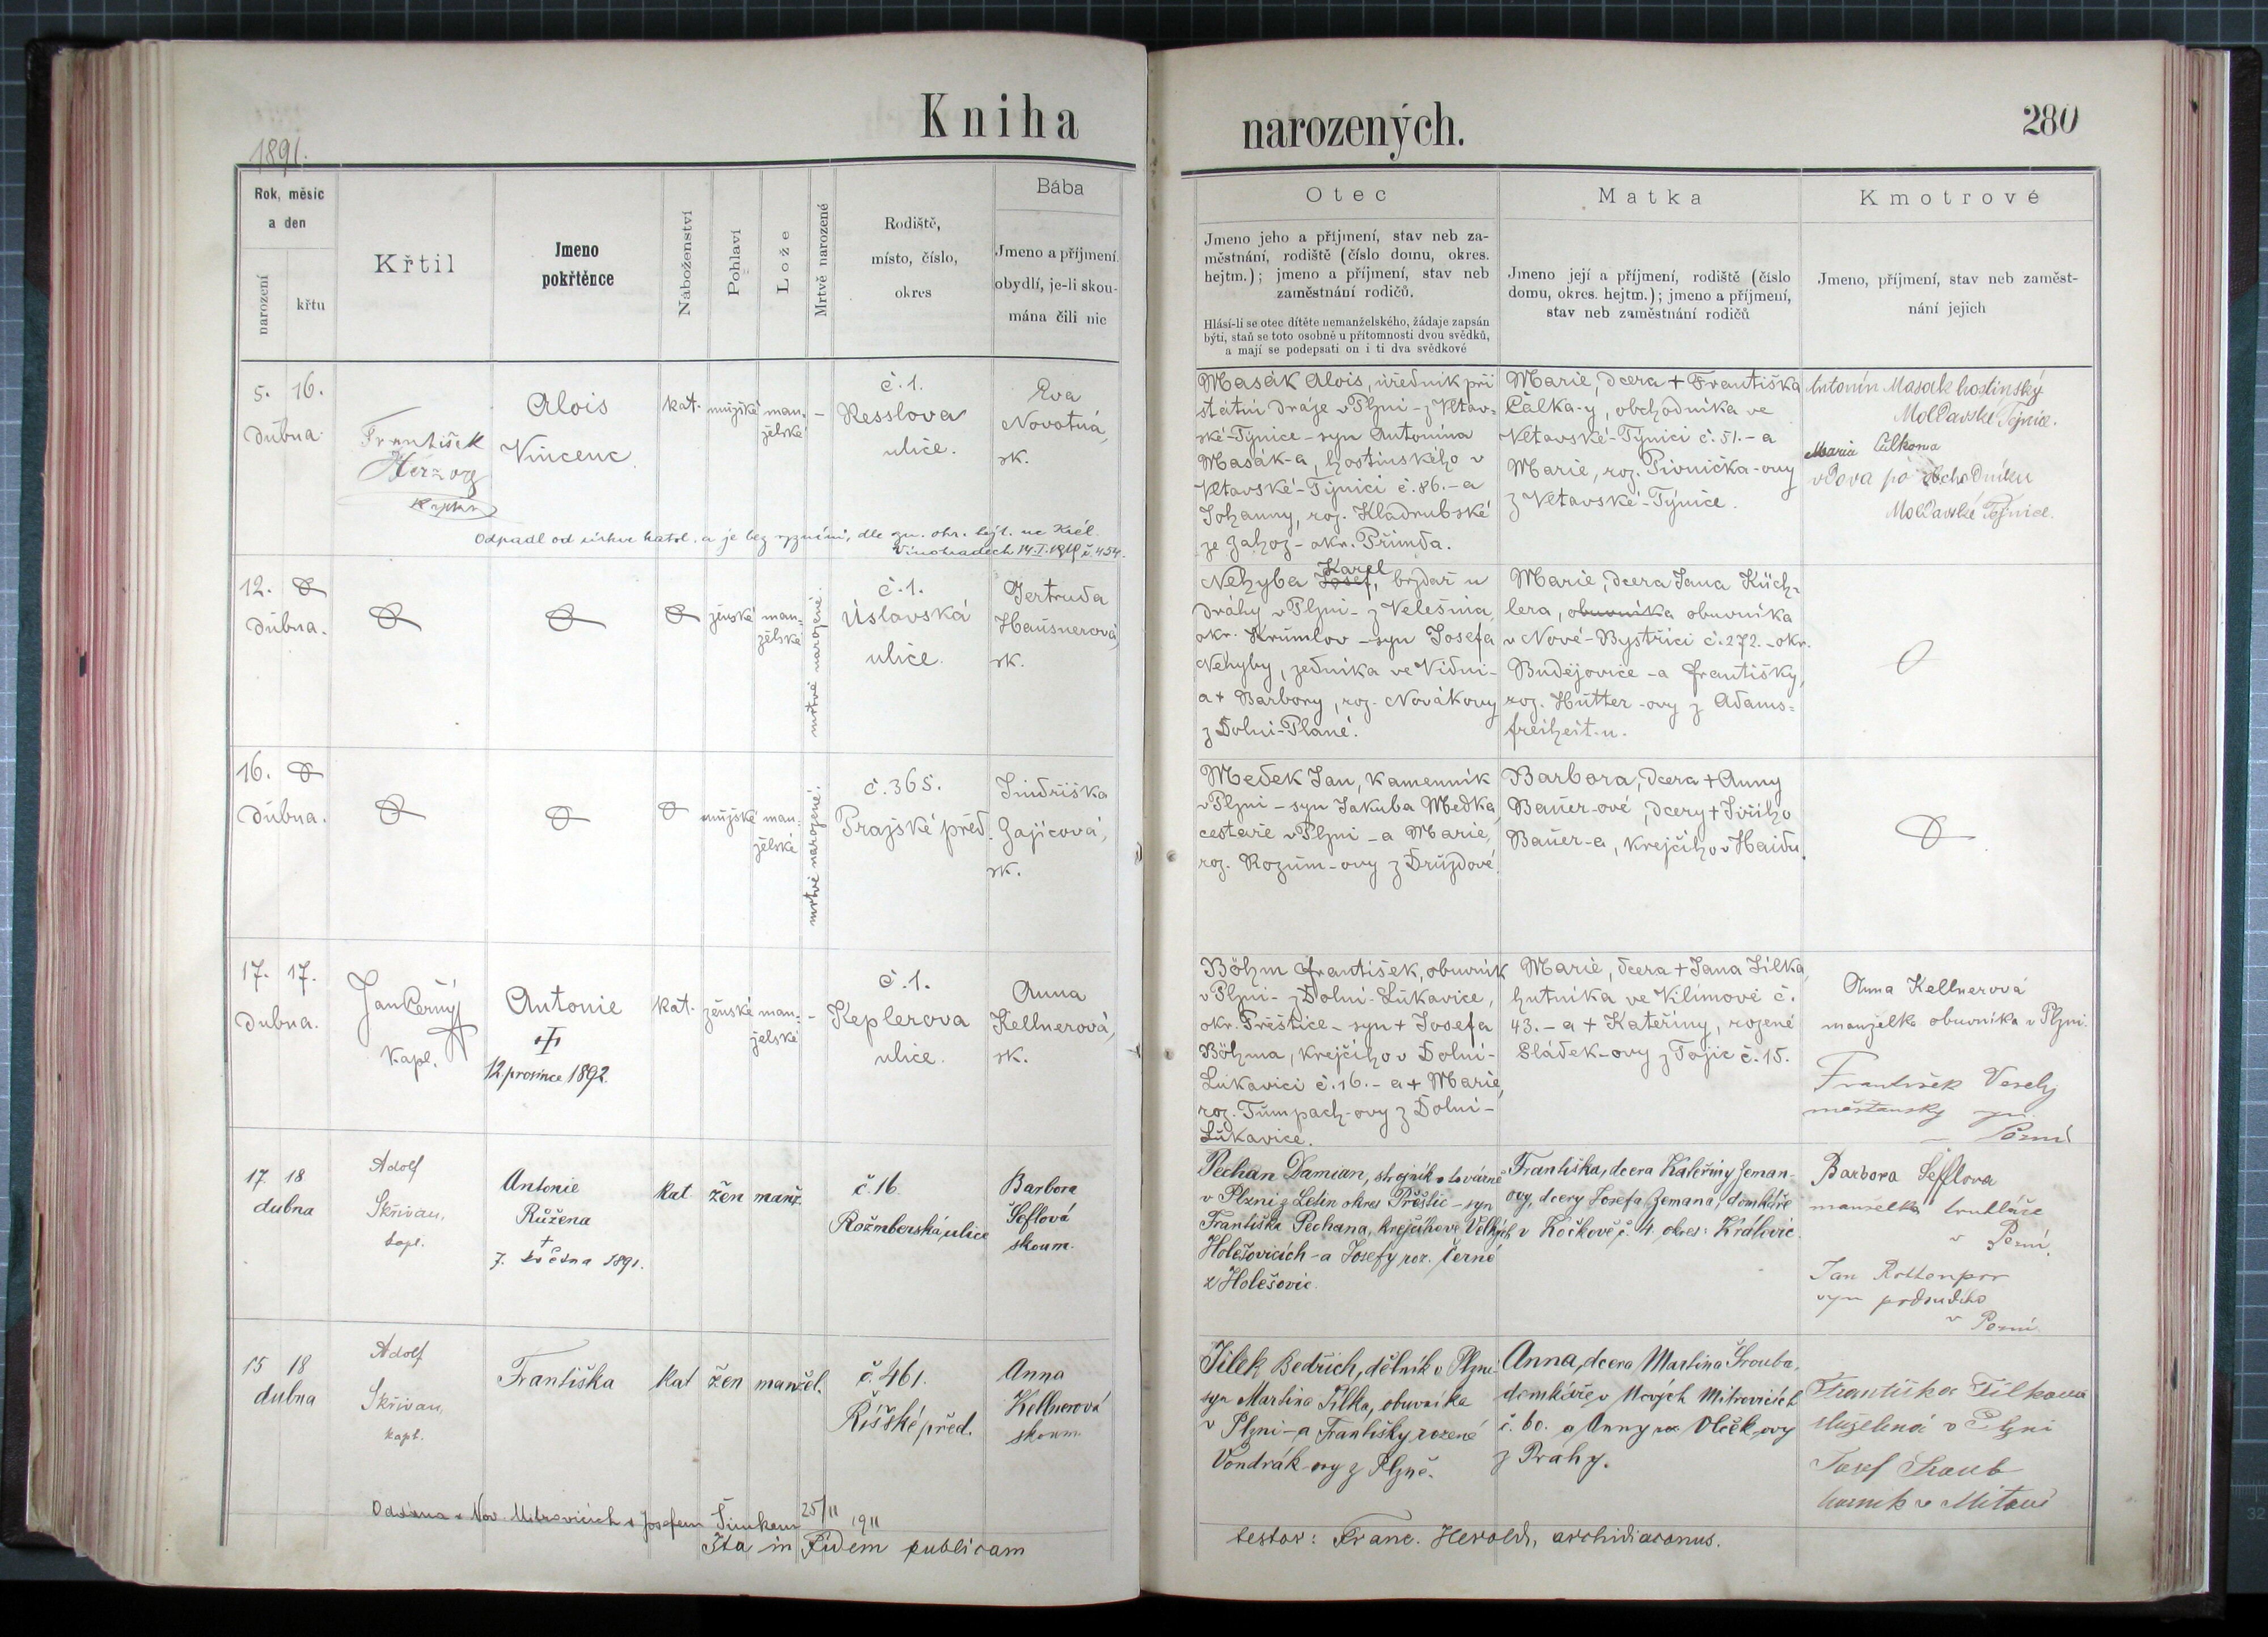 Kniha narozených.
280
1891.
Rok, měsíc
a den
narození
křtu
Křtil
Jmeno
pokřtěnce
Náboženství
Pohlaví
Lože
Mrtvě narozené
Rodiště,
místo, číslo,
okres
Bába
Jmeno a příjmení
obydlí, je-li skou-
mána čili nic
Otec
Jmeno jeho a příjmení, stav neb za-
městnání, rodiště (číslo domu, okres.
hejtm.); jmeno a příjmení, stav neb
zaměstnání rodičů.
Hlásí-li se otec dítěte nemanželského, žádaje zapsán
býti, staň se toto osobně u přítomnosti dvou svědků,
a mají se podepsati on i ti dva svědkové
Matka
Jmeno její a příjmení, rodiště (číslo
domu, okres. hejtm.); jmeno a příjmení,
stav neb zaměstnání rodičů
Kmotrové
Jmeno, příjmení, stav neb zaměst-
nání jejich
5. 16.
dubna
František
Herzog
Alois
Vincenc
kat.
mužské
man-
želské
–
č. 1.
Resslova
ulice.
Eva
Novotná,
sk.
Masák Alois, úředník při
státní dráze v Plzni - z Vltav-
ské-Týnice - syn Antonína
Masák-a, hostinského v
Vltavské-Týnici č. 86. - a
Johanny, roz. Kladrubské
ze Zahoz - okr. Přimda.
Marie, dcera + Františka
Čalka-y, obchodníka ve
Vltavské-Týnici č. 51. - a
Marie, roz. Pivnička-ovy
z Vltavské-Týnice.
Antonín Masák hostinský
Moldavské Tejnice.
Marie Čálkova
vdova po obchodníku
Moldavské Tejnice.
Odpadl od církve katol. a je bez vyznání, dle zn. okr. hejt. na Král.
Vinohradech 14.I.1919 č. 454.
12.
dubna.
ženské
man-
želské
mrtvě narozené.
č. 1.
Úslavská
ulice.
Gertruda
Hausnerová,
sk.
Karel
Nehyba Josef, brzdař u
dráhy v Plzni - z Velešína,
okr. Krumlov - syn Josefa
Nehyby, zedníka ve Vídni -
a + Barbory, roz. Novákovy
z Dolní-Plané.
Marie, dcera Jana Küch-
lera, obuvníka obuvníka
v Nové-Bystřici č. 272. - okr.
Budějovice - a Františky,
roz. Hütter-ovy z Adams-
freiheit-u.
16.
dubna.
mužské
man-
želské
mrtvě narozené.
č. 365.
Pražské před.
Jindřiška
Zajícová,
sk.
Medek Jan, kamenník
v Plzni - syn Jakuba Medka,
cestaře v Plzni - a Marie,
roz. Rozum-ovy z Druzdové.
Barbora, dcera + Anny
Bauer-ové, dcery + Jiřího
Bauer-a, krejčího v Haidu.
17. 17.
dubna.
Jan Černý
kapl.
Antonie
12. prosince 1892.
kat.
ženské
man-
želské
–
č. 1.
Keplerova
ulice.
Anna
Kellnerová,
sk.
Böhm František, obuvník
v Plzni - z Dolní-Lukavice,
okr. Přeštice - syn + Josefa
Böhma, krejčího v Dolní-
Lukavici č. 16. - a + Marie,
roz. Tumpach-ovy z Dolní-
Lukavice.
Marie, dcera + Jana Jílka,
hutníka ve Vilímově č.
43. - a + Kateřiny, rozené
Sládek-ovy z Tajic č. 15.
Anna Kellnerová
manželka obuvníka v Plzni.
František Veselý
17 18
dubna
Adolf
Skřivan,
kapl.
Antonie
Růžena
+
7. května 1891.
kat
žen
manž.
č. 16.
Rožmberská ulice
Barbora
Šeflová
skoum.
Pechan Damian, strojník v továrně
v Plzni z Letin okres Přeštic - syn
Františka Pechana, krejčího ve Velkých
Holešovicích - a Josefy roz. Černé
z Holešovic.
Františka, dcera Kateřiny Zeman-
ovy, dcery Josefa Zemana, domkáře
v Kočkově č. 4 okres: Královic.
Barbora Šefflova
manželka truhláře
v Plzni.
Jan
15 18
dubna
Adolf
Skřivan,
kapl.
Františka
kat
žen
manžel.
č. 461.
Říšské před.
Anna
Kellnerová
skoum.
Jílek Bedřich, dělník v Plzni
syn Martina Jílka, obuvníka
v Plzni - a Františky rozené
Vondrák-ovy z Plzně.
Anna, dcera Martina Šrouba,
domkáře v Nových Mitrovicích
č. 60. a Anny roz. Vlček-ovy
z Prahy.
Františka Jílkova
služebná v Plzni
Josef
Oddána v Nov. Mitrovicích s Josefem Šimkem 25/11 1911
Ita in Fidem publicam
testor: Franc. Herold, archidiaconus.